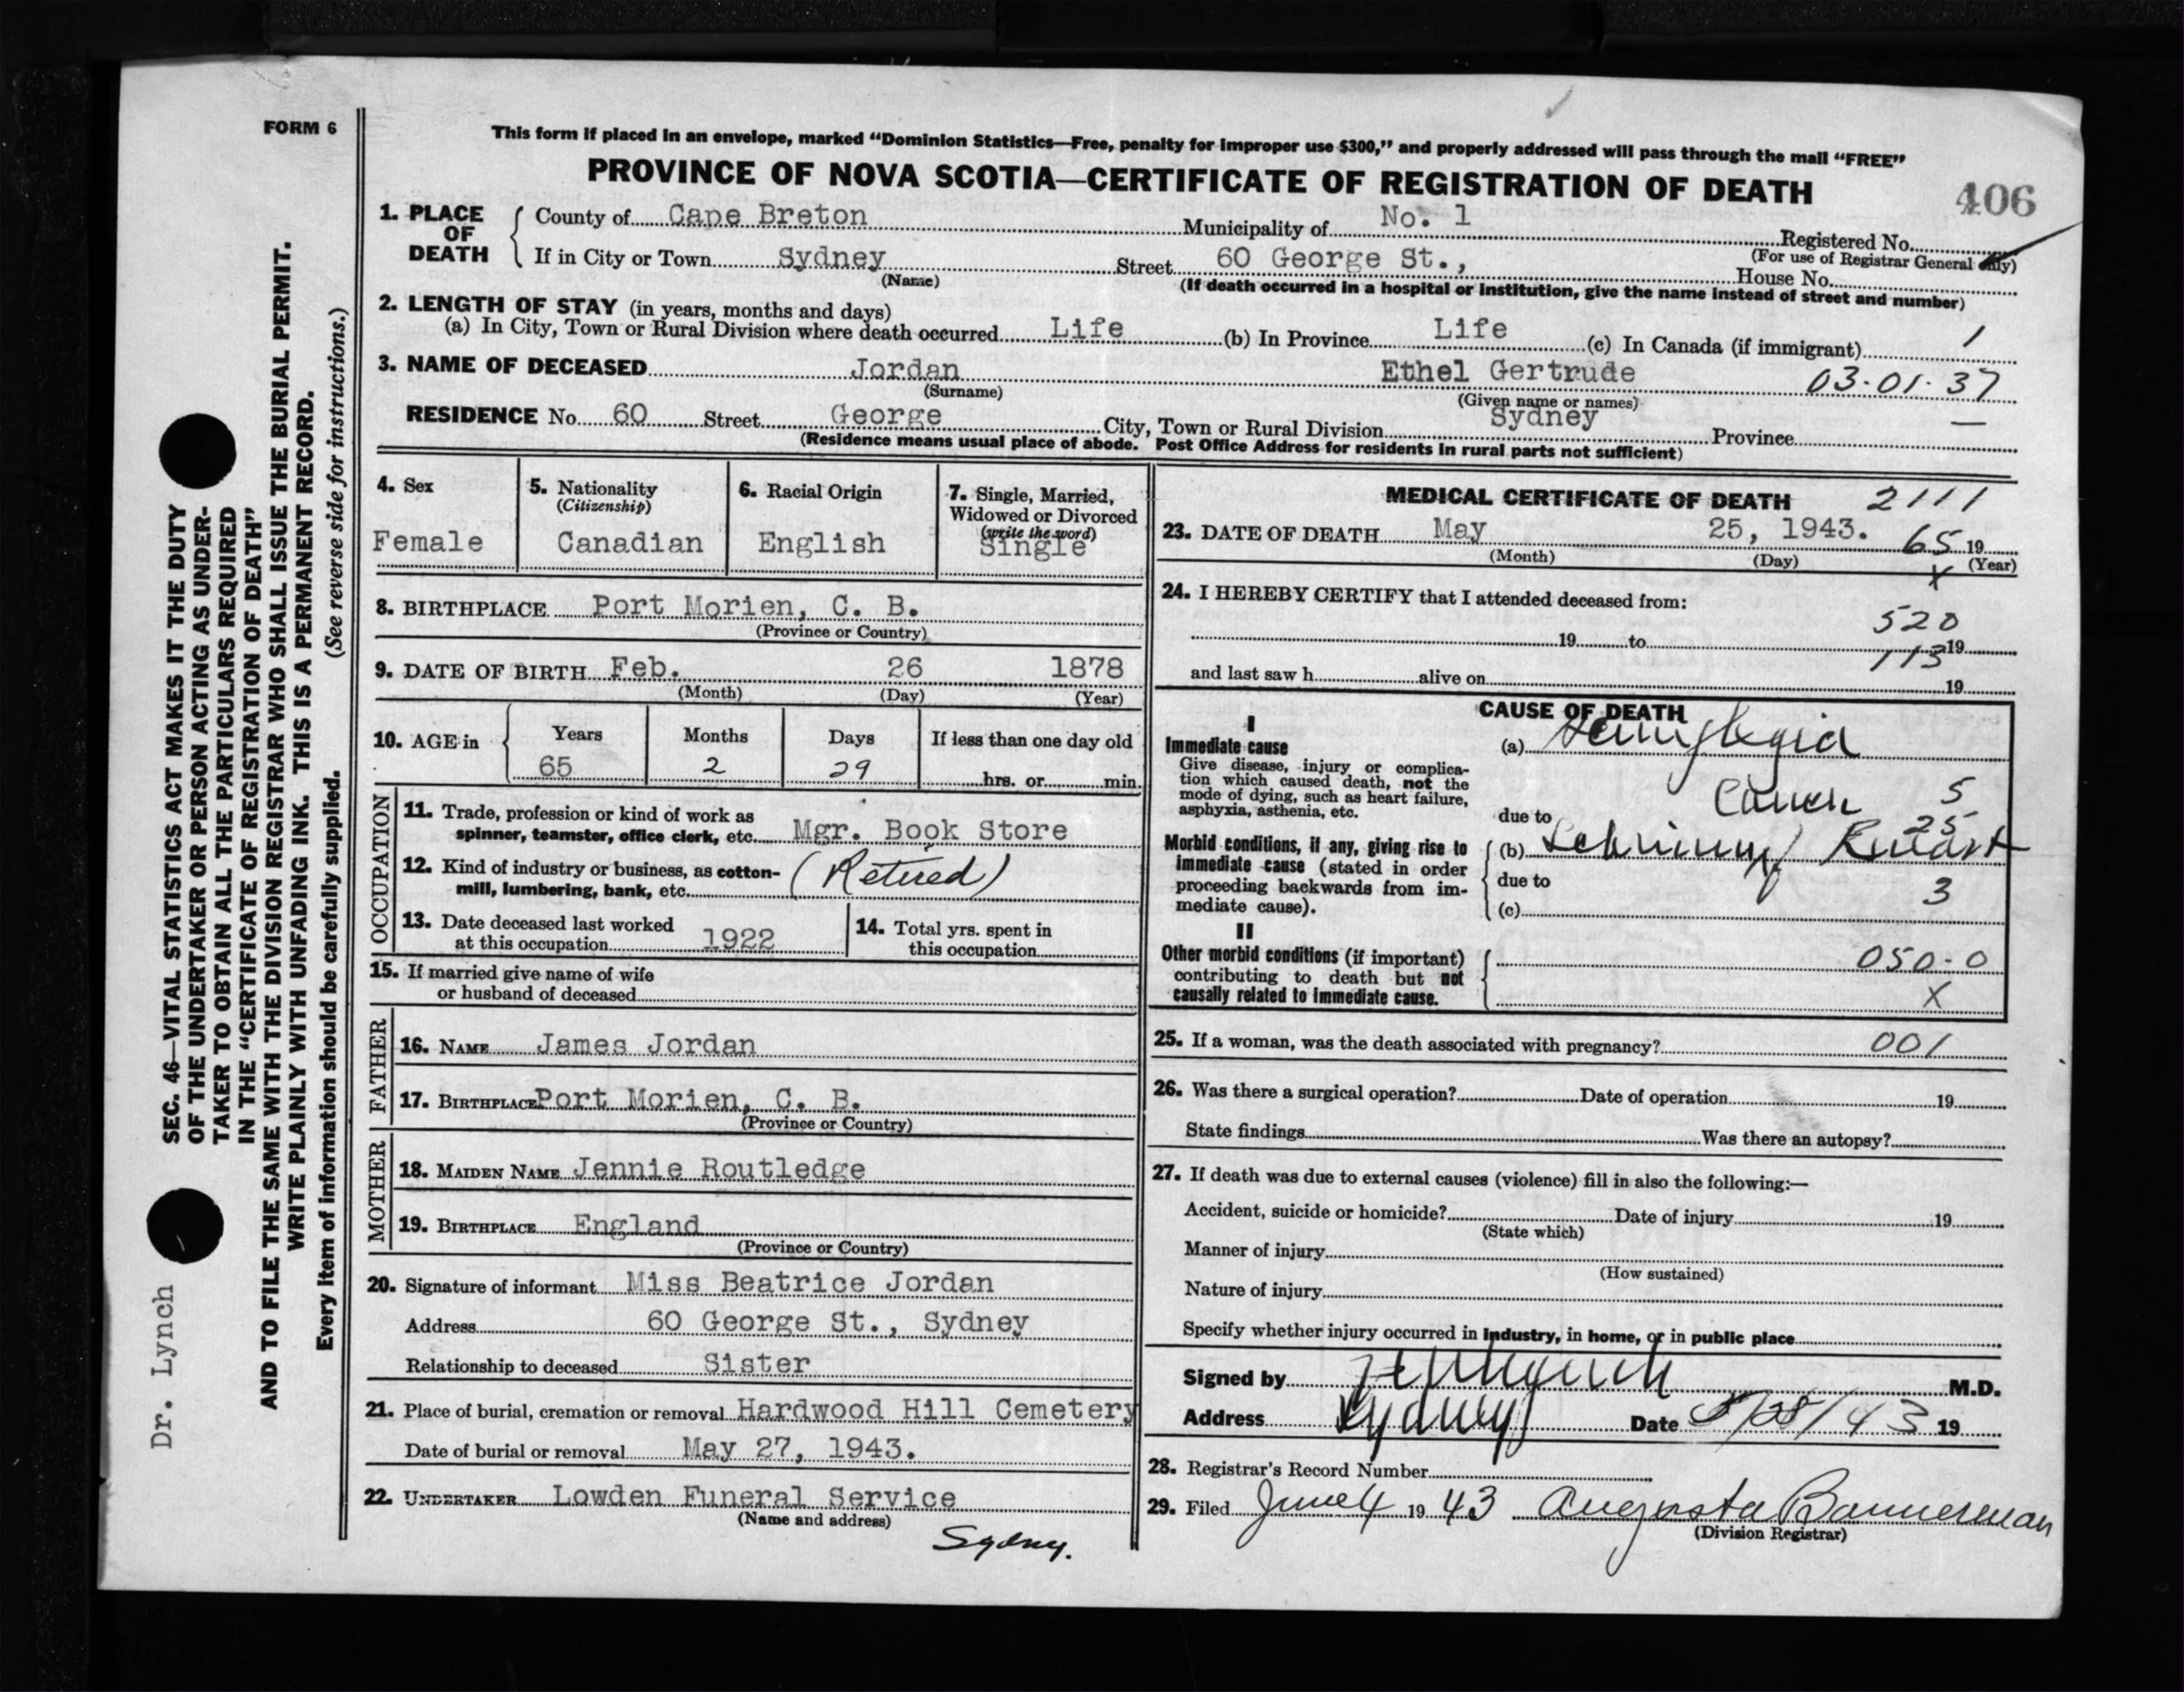 FORM 6
This form if placed in an envelope, marked “Dominion Statistics—Free, penalty for improper use $300,” and properly addressed will pass through the mail “FREE”
PROVINCE OF NOVA SCOTIA—CERTIFICATE OF REGISTRATION OF DEATH
406
1. PLACE OF DEATH
County of Cape Breton Municipality of No. 1 Registered No.
(For use of Registrar General only)
If in City or Town Sydney Street 60 George St., House No.
(Name) (If death occurred in a hospital or institution, give the name instead of street and number)
2. LENGTH OF STAY (in years, months and days)
(a) In City, Town or Rural Division where death occurred Life (b) In Province Life (c) In Canada (if immigrant) 1
3. NAME OF DECEASED Jordan Ethel Gertrude 03-01-37
(Surname) (Given name or names)
RESIDENCE No. 60 Street George City, Town or Rural Division Sydney Province —
(Residence means usual place of abode. Post Office Address for residents in rural parts not sufficient)
4. Sex
Female
5. Nationality
(Citizenship)
Canadian
6. Racial Origin
English
7. Single, Married,
Widowed or Divorced
(write the word)
Single
8. BIRTHPLACE Port Morien, C. B.
(Province or Country)
9. DATE OF BIRTH Feb. 26 1878
(Month) (Day) (Year)
10. AGE in
Years Months Days If less than one day old
65 2 29 hrs. or min.
OCCUPATION
11. Trade, profession or kind of work as
spinner, teamster, office clerk, etc. Mgr. Book Store
12. Kind of industry or business, as cotton-
mill, lumbering, bank, etc. (Retired)
13. Date deceased last worked
at this occupation 1922
14. Total yrs. spent in
this occupation
15. If married give name of wife
or husband of deceased
FATHER
16. NAME James Jordan
17. BIRTHPLACE Port Morien, C. B.
(Province or Country)
MOTHER
18. MAIDEN NAME Jennie Routledge
19. BIRTHPLACE England
(Province or Country)
20. Signature of informant Miss Beatrice Jordan
Address 60 George St., Sydney
Relationship to deceased Sister
21. Place of burial, cremation or removal Hardwood Hill Cemetery
Date of burial or removal May 27, 1943.
22. UNDERTAKER Lowden Funeral Service
(Name and address)
Sydney.
MEDICAL CERTIFICATE OF DEATH 2111
23. DATE OF DEATH May 25, 1943. 65 19
(Month) (Day) (Year)
X
24. I HEREBY CERTIFY that I attended deceased from:
520
19 to 19
113
and last saw h alive on 19
CAUSE OF DEATH
I
Immediate cause
Give disease, injury or complica-
tion which caused death, not the
mode of dying, such as heart failure,
asphyxia, asthenia, etc.
(a) Hemiplegia
5
due to Cancer
25
Morbid conditions, if any, giving rise to
immediate cause (stated in order
proceeding backwards from im-
mediate cause).
(b)
due to
3
(c)
II
Other morbid conditions (if important)
contributing to death but not
causally related to immediate cause.
050-0
X
25. If a woman, was the death associated with pregnancy? 001
26. Was there a surgical operation? Date of operation 19
State findings Was there an autopsy?
27. If death was due to external causes (violence) fill in also the following:—
Accident, suicide or homicide? Date of injury 19
(State which)
Manner of injury
(How sustained)
Nature of injury
Specify whether injury occurred in industry, in home, or in public place
Signed by M.D.
Address Sydney Date 5/28/43 19
28. Registrar's Record Number
29. Filed June 4 19 43 Augusta Bannerman
(Division Registrar)
SEC. 46—VITAL STATISTICS ACT MAKES IT THE DUTY
OF THE UNDERTAKER OR PERSON ACTING AS UNDER-
TAKER TO OBTAIN ALL THE PARTICULARS REQUIRED
IN THE “CERTIFICATE OF REGISTRATION OF DEATH”
AND TO FILE THE SAME WITH THE DIVISION REGISTRAR WHO SHALL ISSUE THE BURIAL PERMIT.
WRITE PLAINLY WITH UNFADING INK. THIS IS A PERMANENT RECORD.
Every item of information should be carefully supplied. (See reverse side for instructions.)
Dr. Lynch